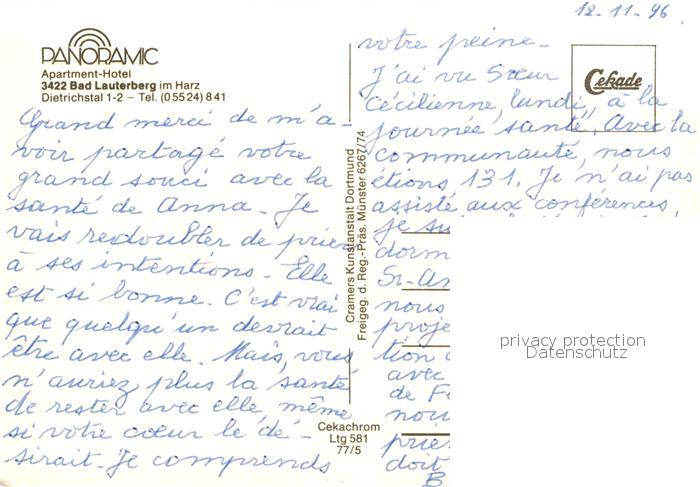 12-11-96
PANORAMIC
Apartment-Hotel
3422 Bad Lauterberg im Harz
Dietrichstal 1-2 – Tel. (05524) 841
Grand merci de m'a-
voir partagé votre
grand souci avec la
santé de Anna. Je
vais redoubler de prier
à ses intentions. Elle
est si bonne. C'est vrai
que quelqu'un devrait
être avec elle. Mais, vous
n'auriez plus la santé
de rester avec elle, même
si votre cœur le dé-
sirait. Je comprends
Cramers Kunstanstalt Dortmund
Freigeg. d. Reg.-Präs. Münster 6267/74
Cekachrom
Ltg 581
77/5
Cekade
votre peine.
J'ai vu Sœur
Cécilienne, lundi, à la
journée santé. Avec la
communauté, nous
étions 131. Je n'ai pas
assisté aux conférences,
je su
dorm
Sr-An
nous
proje
tion
avec
de F
nou
prie
doit
B
privacy protection
Datenschutz